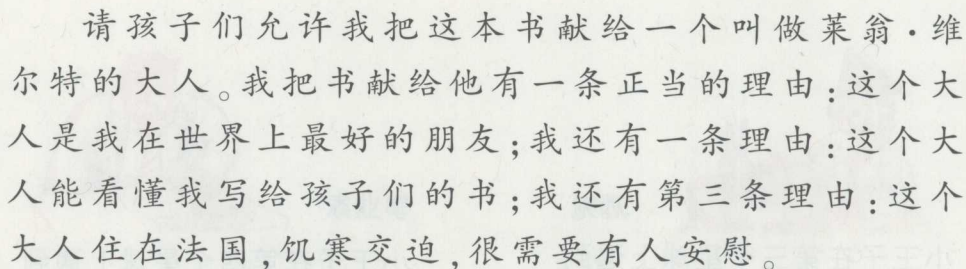 请孩子们允许我把这本书献给一个叫做莱翁·维
尔特的大人。我把书献给他有一条正当的理由：这个大
人是我在世界上最好的朋友；我还有一条理由：这个大
人能看懂我写给孩子们的书；我还有第三条理由：这个
大人住在法国，饥寒交迫，很需要有人安慰。